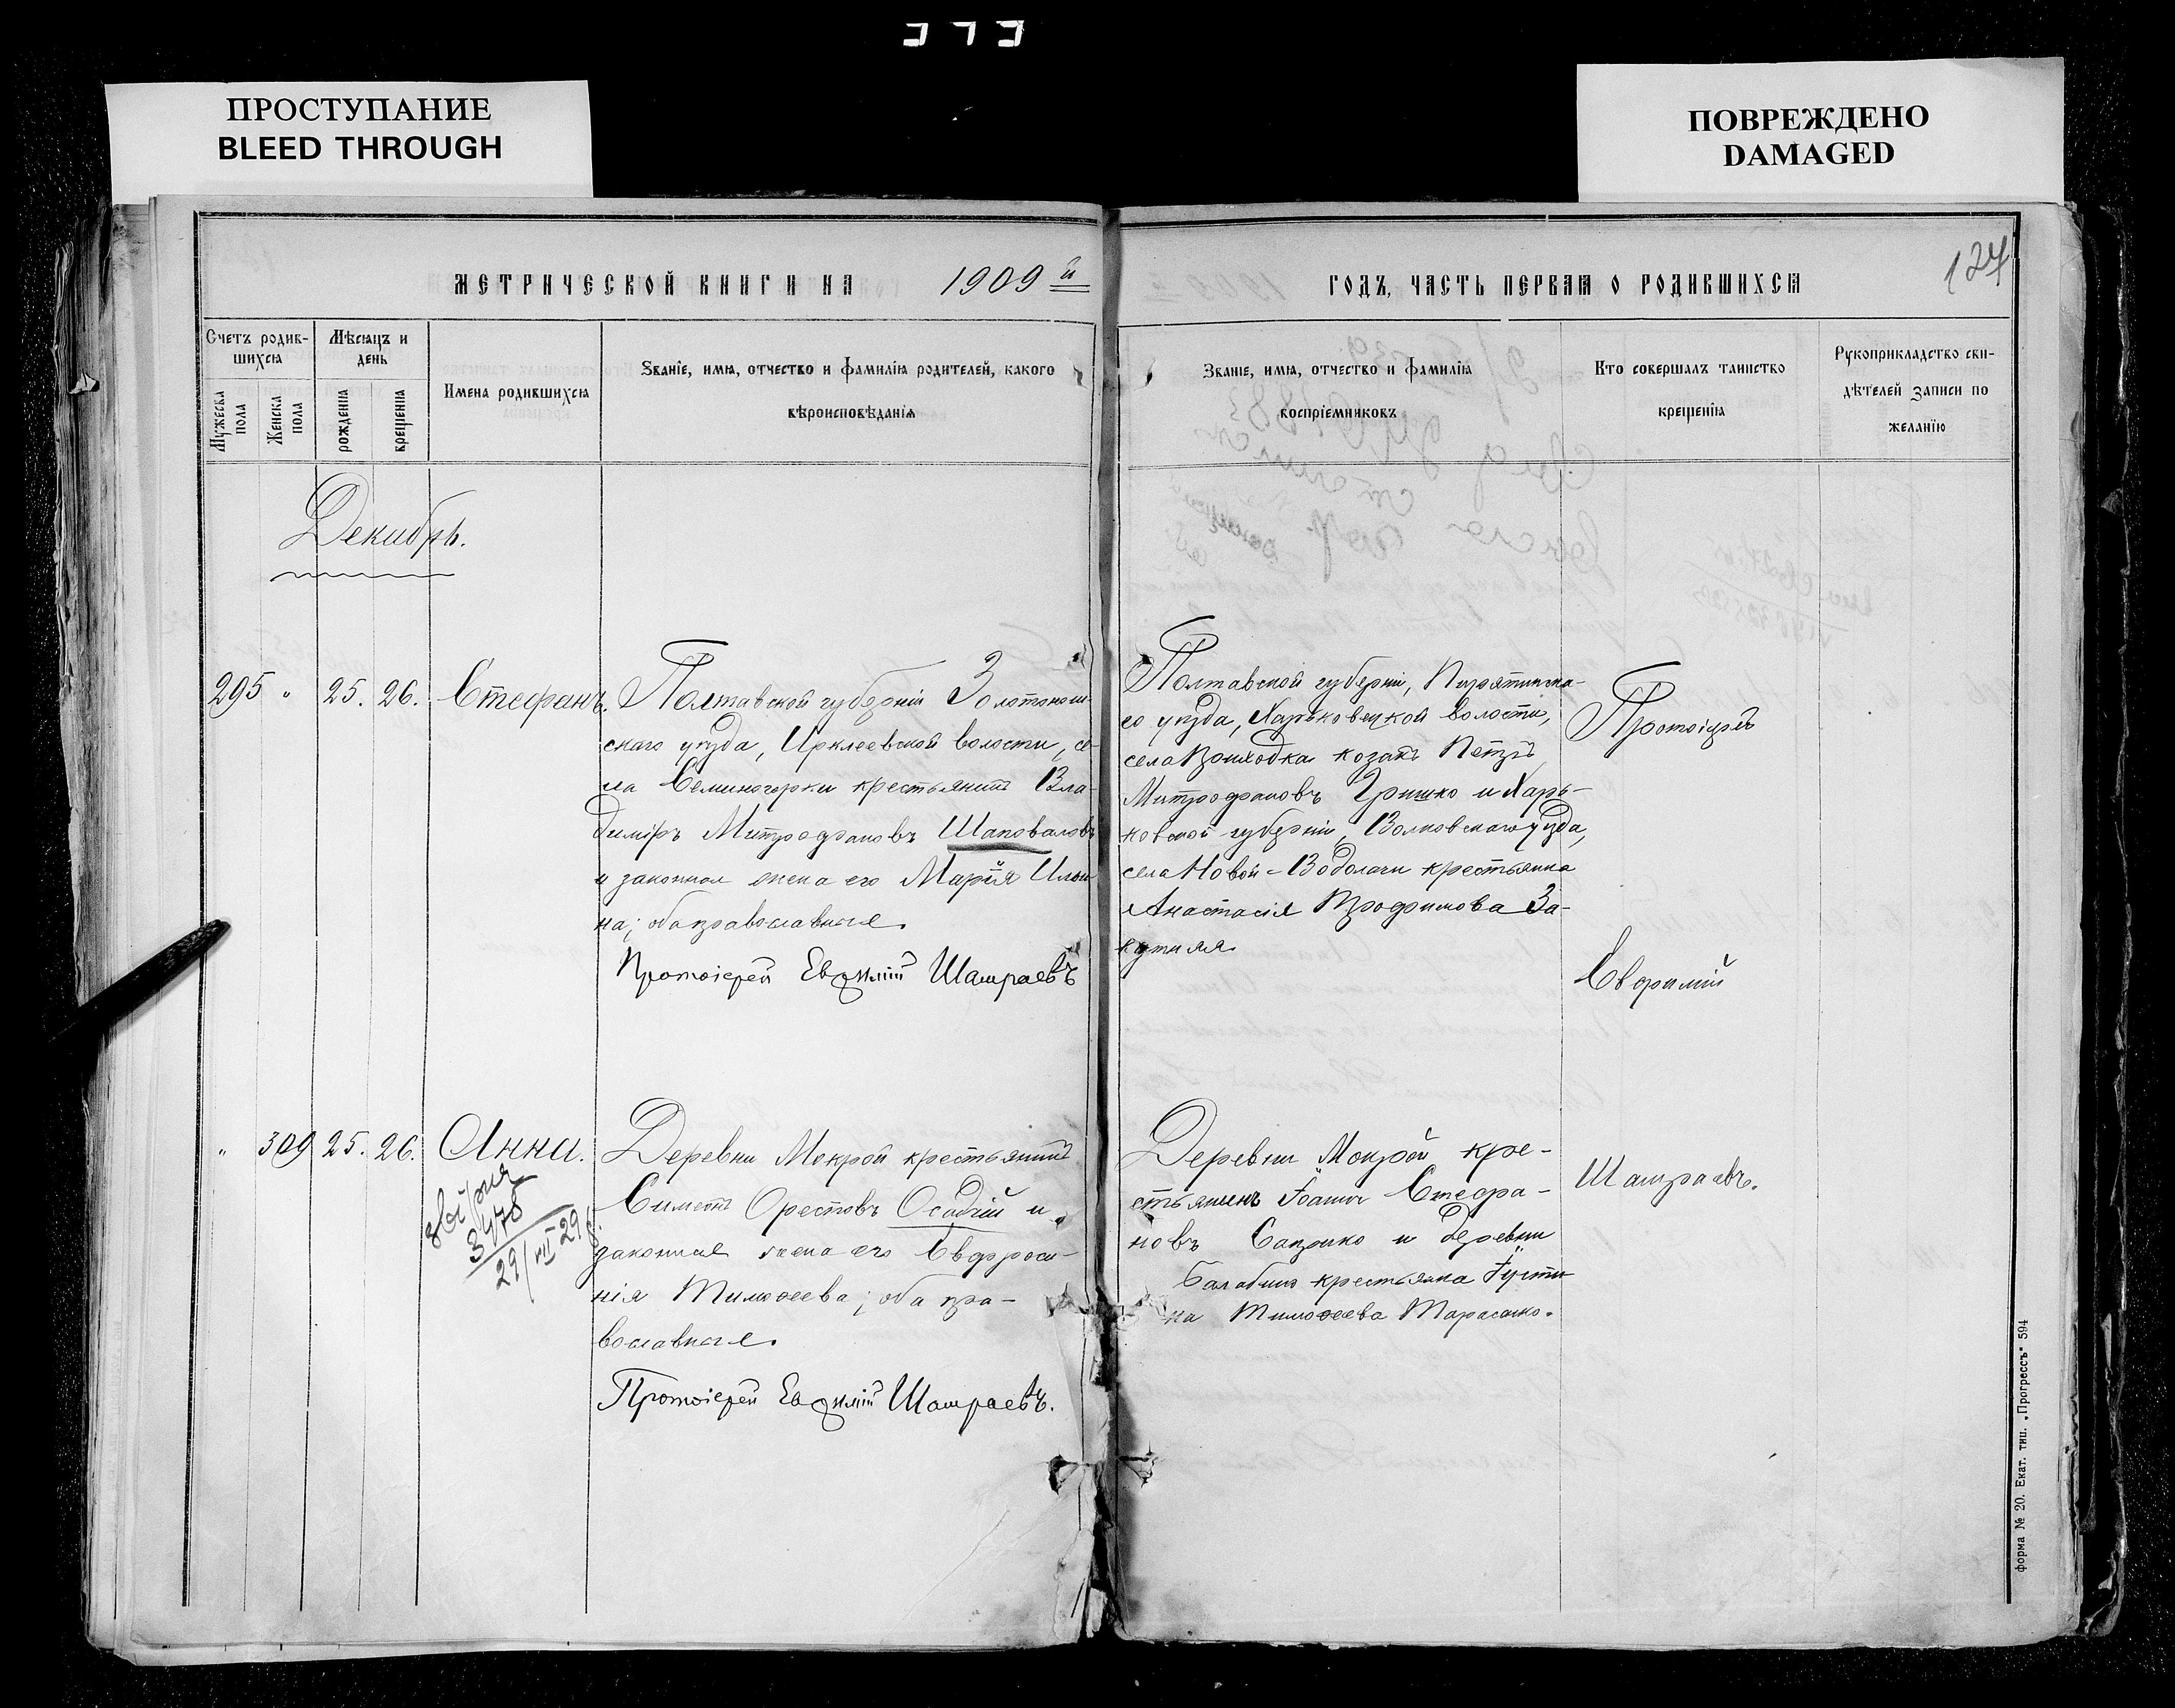 ПРОСТУПАНИЕ
BLEED THROUGH
ПОВРЕЖДЕНО
DAMAGED
МЕТРИЧЕСКОЙ КНИГИ НА 1909 й
ГОДЪ, ЧАСТЬ ПЕРВАЯ О РОДИВШИХСЯ
124
Счетъ родив-
шихся
Мужеска пола
Женска пола
Мѣсяцъ и
день
рожденія
крещенія
Имена родившихся
Званіе, имя, отчество и фамилія родителей, какого
вѣроисповѣданія
Званіе, имя, отчество и фамилія
воспріемниковъ
Кто совершалъ таинство
крещенія
Рукоприкладство сви-
дѣтелей записи по
желанію
Декабрь.
295 " 25. 26. Стефанъ.
Полтавской губерніи Золотонош-
скаго уѣзда, Ирклеевской волости, се-
ла Семиногорки крестьянинъ Вла-
диміръ Митрофановъ Шаповаловъ
и законная жена его Марія Ильи-
на; оба православные.
Протоіерей Евфимій Шашраевъ
Полтавской губерніи, Пирятинска-
го уѣзда, Харьковецкой волости,
села козакъ Петръ
Митрофановъ Гришко и Харь-
ковской губерніи, Волковскаго уѣзда,
села Новой-Водолаги крестьянка
Анастасія Трофимова За-
Протоіерей
Евфимій
Шашраевъ.
" 309 25. 26. Анна.
3478
29/VII-29
Деревни Мокрой крестьянинъ
Симеонъ Орестовъ Осадчій и
законная жена его Евфроси-
нія Тимоѳеева; оба пра-
вославные.
Протоіерей Евфимій Шашраевъ.
Деревни Мокрой кре-
стьянинъ Іоаннъ Стефа-
новъ Сапрыко и деревни
Балабина крестьянка Іусти-
на Тимоѳеева
форма № 20. Екат. тип. „Прогрессъ" 594